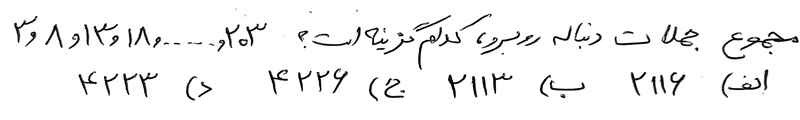 مجموع جملات دنباله روبرو، کدام گزینه است؟ ۳ و ۸ و ۱۳ و ۱۸ و ..... و ۲۰۳
الف) ۲۱۱۶ ب) ۲۱۱۳ ج) ۴۲۲۶ د) ۴۲۲۳